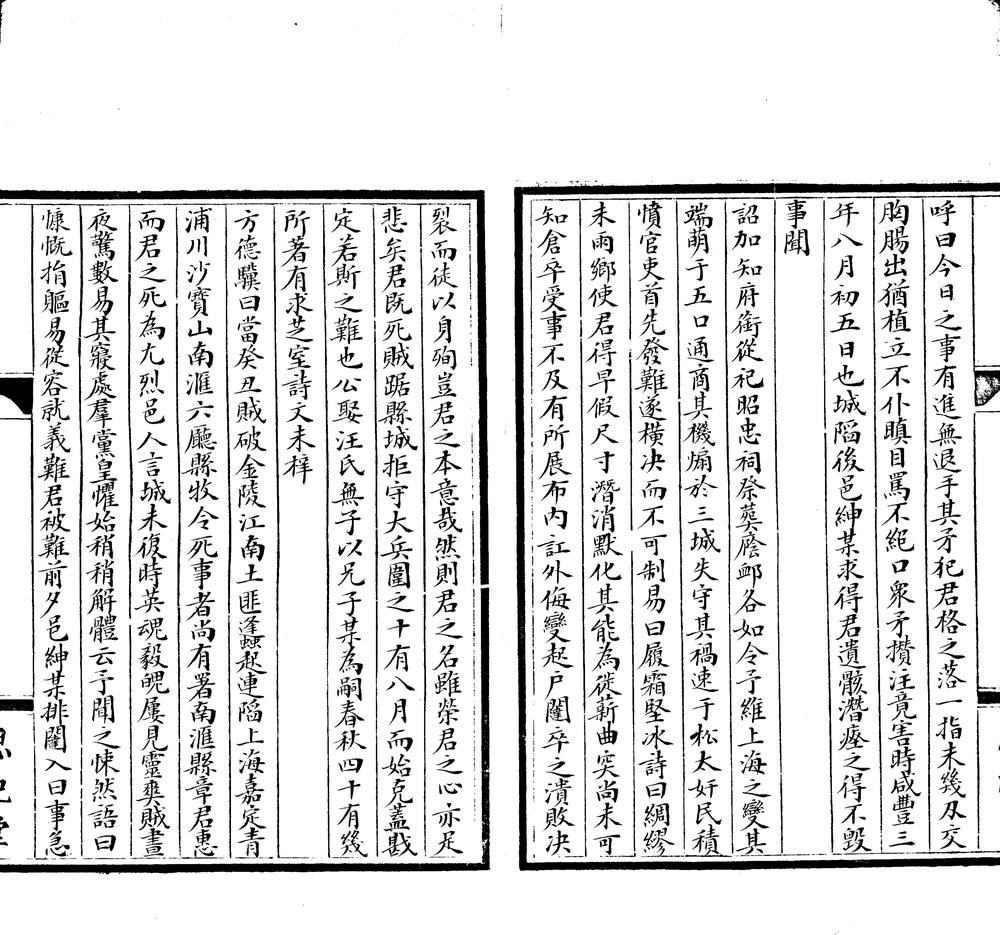 呼曰今日之事有進無退手其矛犯君格之落一指未幾刃交
胸腸出猶植立不仆瞋目罵不絕口衆矛攢注竟害時咸豐三
年八月初五日也城陷後邑紳某求得君遺骸潛瘞之得不毀
事聞
詔加知府銜從祀昭忠祠祭塟廕卹各如令予維上海之變其
端萌于五口通商其機煽於三城失守其禍速于松太奸民積
憤官吏首先發難遂橫决而不可制易曰履霜堅冰詩曰綢繆
未雨鄉使君得早假尺寸潛消默化其能為徙薪曲突尚未可
知倉卒受事不及有所展布内訌外侮變起户闥卒之潰敗决
裂而徒以身殉豈君之本意哉然則君之名雖榮君之心亦足
悲矣君既死賊踞縣城拒守大兵圍之十有八月而始克蓋戡
定若斯之難也公娶汪氏無子以兄子某為嗣春秋四十有幾
所著有求芝室詩文未梓
方德驥曰當癸丑賊破金陵江南土匪蠭起連陷上海嘉定青
浦川沙寶山南滙六廳縣牧令死事者尚有署南滙縣章君惠
而君之死為尢烈邑人言城未復時英魂毅魄屢見靈爽賊晝
夜驚數易其寢處羣黨皇懼始稍稍解體云予聞之悚然語曰
慷慨捐軀易從容就義難君被難前夕邑紳某排闥入曰事急